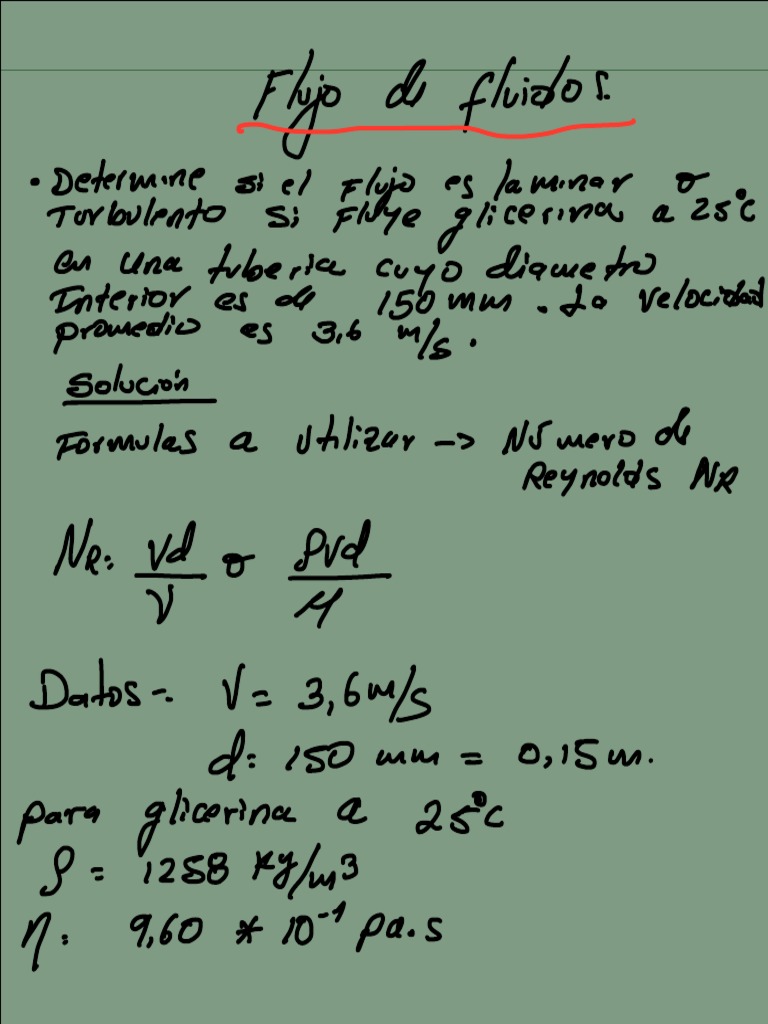 Flujo de fluidos.
• Determine si el Flujo es laminar o
Turbulento si Fluye glicerina a 25°C
en una tuberia cuyo diametro
Interior es de 150 mm. La velocidad
promedio es 3,6 m/s.
Solución
Formulas a utilizar -> Número de
Reynolds NR
NR: vd/ν o ρvd/μ
Datos-. V = 3,6 m/s
d: 150 mm = 0,15 m.
para glicerina a 25°C
ρ = 1258 kg/m3
η: 9,60 * 10⁻¹ pa.s